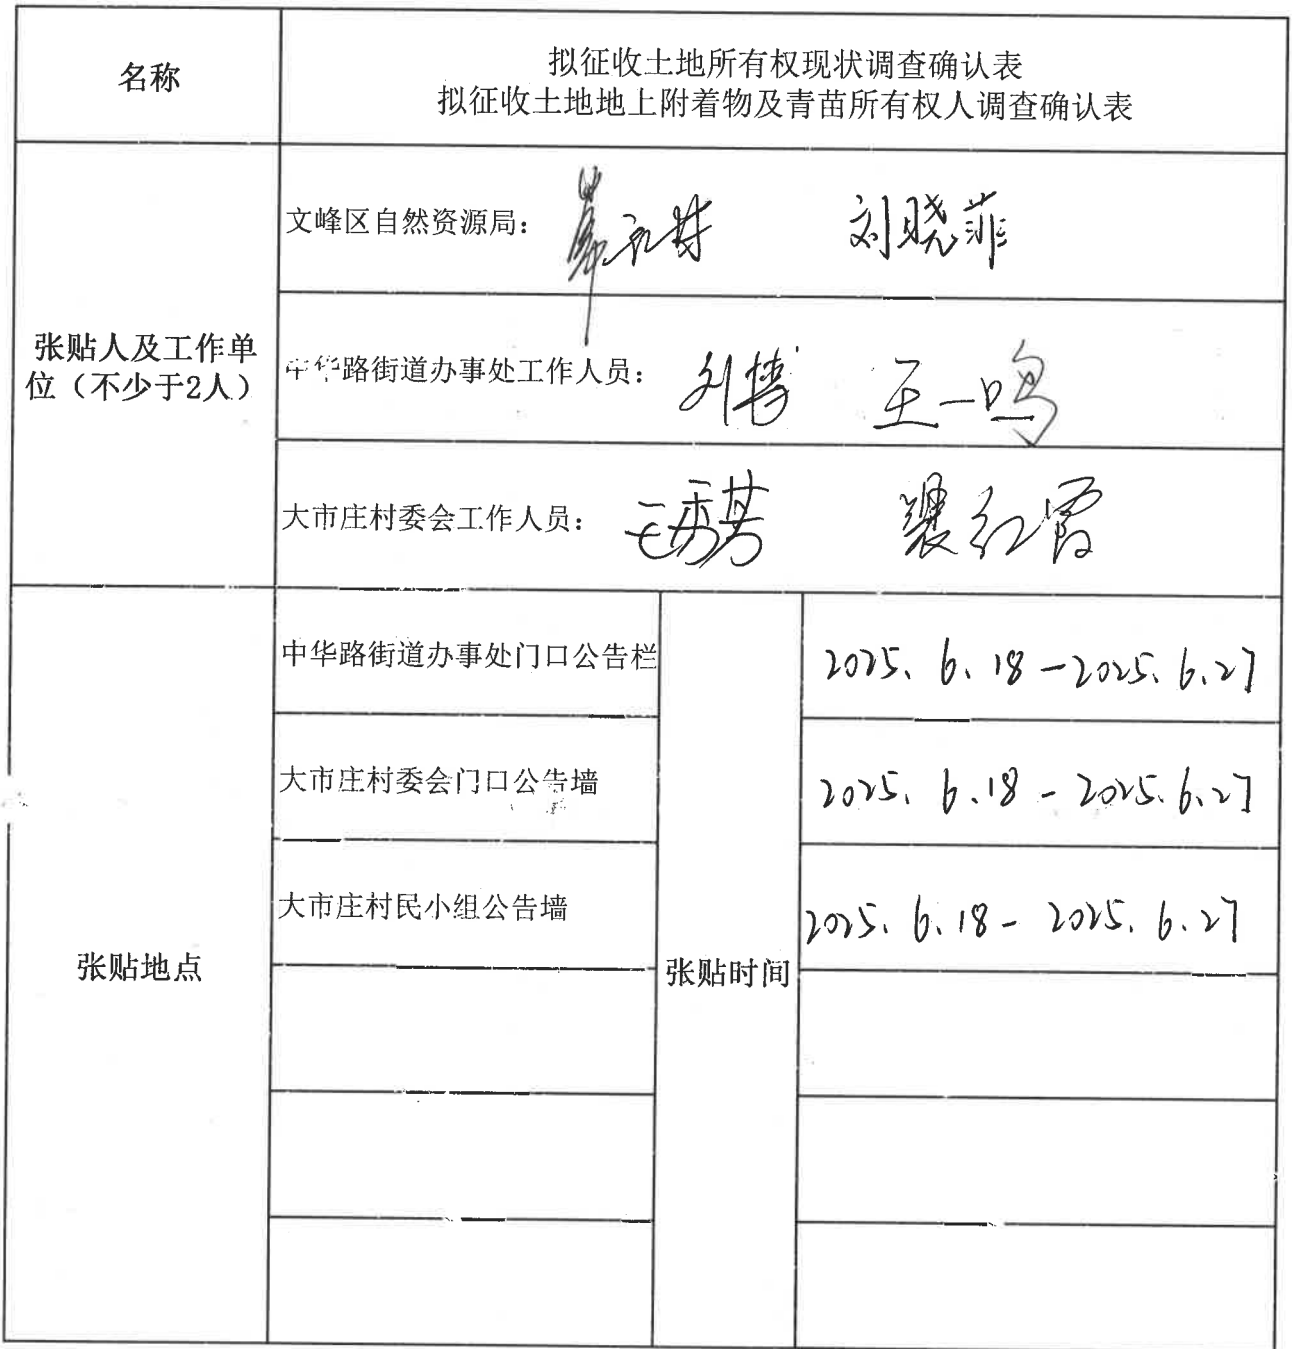 名称
拟征收土地所有权现状调查确认表
拟征收土地地上附着物及青苗所有权人调查确认表
张贴人及工作单
位（不少于2人）
文峰区自然资源局： 刘晓菲
中华路街道办事处工作人员： 刘博 王一鸣
大市庄村委会工作人员： 红霞
张贴地点
张贴时间
中华路街道办事处门口公告栏 2025.6.18-2025.6.27
大市庄村委会门口公告墙 2025.6.18-2025.6.27
大市庄村民小组公告墙 2025.6.18-2025.6.27